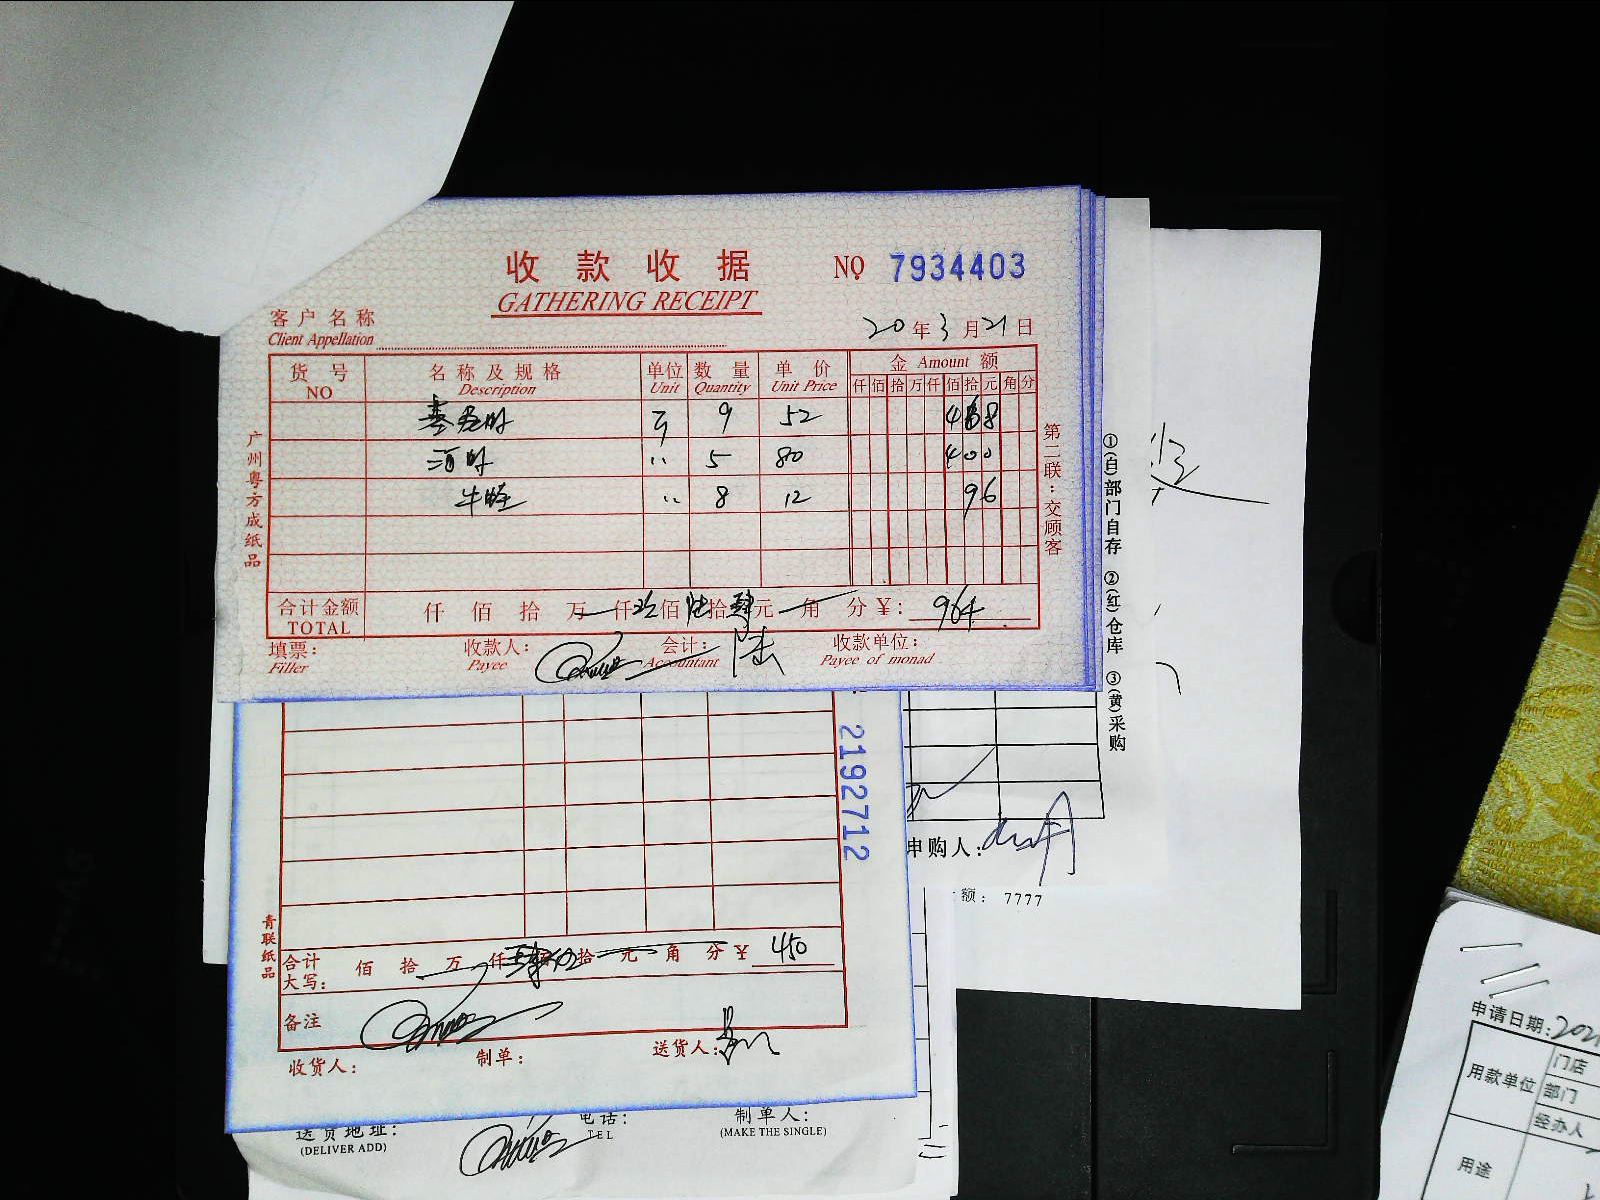 收款收据 NO 7934403
GATHERING RECEIPT
客户名称
Client Appellation
20年3月21日
货号 名称及规格 单位 数量 单价 金 Amount 额
NO Description Unit Quantity Unit Price 仟佰拾万仟佰拾元角分
9 52 468
〃 5 80 400
〃 8 12 96
合计金额 仟佰拾万仟玖佰陆拾肆元角分¥: 964
TOTAL
填票: 收款人: 会计: 收款单位:
Filler Payee Accountant Payee of monad
广州粤方成纸品
第二联:交顾客
①(自)部门自存 ②(红)仓库 ③(黄)采购
2192712
申购人:
额: 7777
青联纸品
合计 佰拾万仟肆佰伍拾元角分¥ 450
大写:
备注
收货人: 制单: 送货人:
送货地址: 电话: 制单人:
(DELIVER ADD) TEL (MAKE THE SINGLE)
申请日期:202
用款单位 门店
部门
经办人
用途